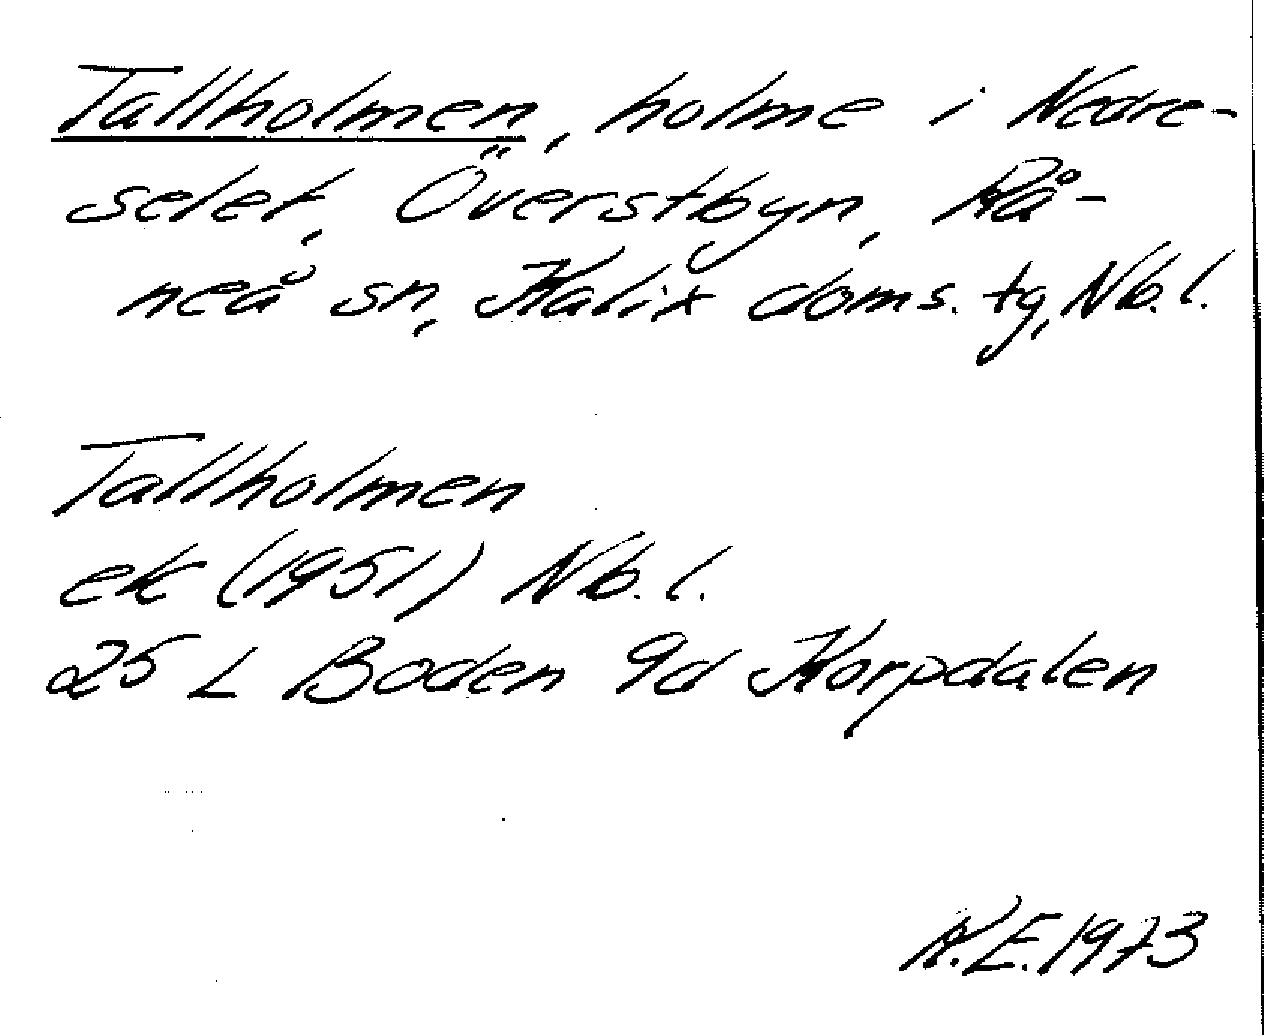 Tallholmen, holme i Nedre-
selet, Överstbyn, Rå-
neå sn, Kalix doms. tg, Nb. l.
Tallholmen
ek (1951) Nb. l.
25 L Boden 9d Korpdalen
K.E. 1973